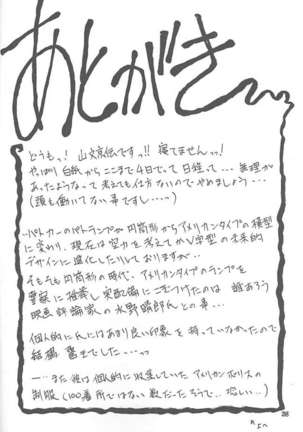 あとがき
どうもっ! 山文京伝ですっ!! 寝てませんっっ!
やっぱり白紙からここまで4日でって日程って… 無理が
あったようなって考えても仕方ないのでやめましょう…
(頭も働いてない事ですし…)
パトカーのパトランプが円筒形からアメリカンタイプの横型
に変わり、現在は空力を考えてかV字型の未来的
デザインに進化したりしておりますが…
そもそも円筒形の時代、アメリカンタイプのランプを
警察に推薦し実配備にこぎつけたのは 誰あろう
映画評論家の水野晴郎氏との事…
個人的に氏にはあまり良い印象を持っていなかったので
結構 驚きでした…っっ
…また彼は個人的に収集していたアメリカンポリスの
制服(100着所ではない数だったそうで… 恐い…)
28